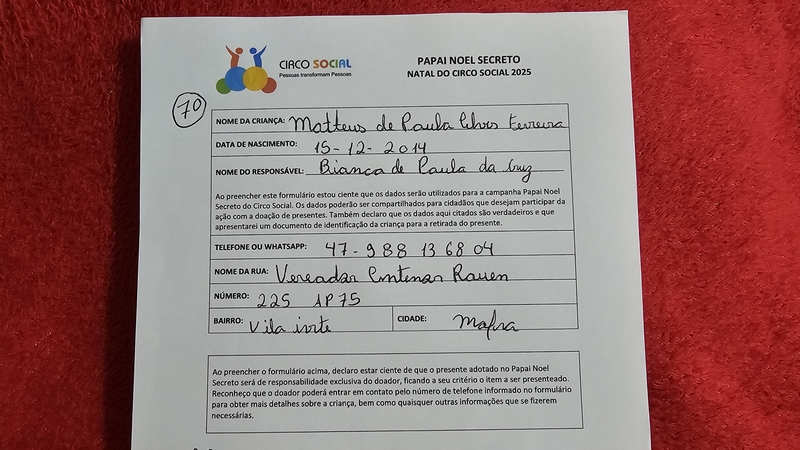 CIRCO SOCIAL
Pessoas transformam Pessoas
PAPAI NOEL SECRETO
NATAL DO CIRCO SOCIAL 2025
70
NOME DA CRIANÇA: Matteus de Paula Ferreira
DATA DE NASCIMENTO: 15-12-2014
NOME DO RESPONSÁVEL: Bianca de Paula da Cruz
Ao preencher este formulário estou ciente que os dados serão utilizados para a campanha Papai Noel
Secreto do Circo Social. Os dados poderão ser compartilhados para cidadãos que desejam participar da
ação com a doação de presentes. Também declaro que os dados aqui citados são verdadeiros e que
apresentarei um documento de identificação da criança para a retirada do presente.
TELEFONE OU WHATSAPP: 47-988 13 68 04
NOME DA RUA: Vereador Rauen
NÚMERO: 225 AP 75
BAIRRO: Vila CIDADE: Mafra
Ao preencher o formulário acima, declaro estar ciente de que o presente adotado no Papai Noel
Secreto será de responsabilidade exclusiva do doador, ficando a seu critério o item a ser presenteado.
Reconheço que o doador poderá entrar em contato pelo número de telefone informado no formulário
para obter mais detalhes sobre a criança, bem como quaisquer outras informações que se fizerem
necessárias.